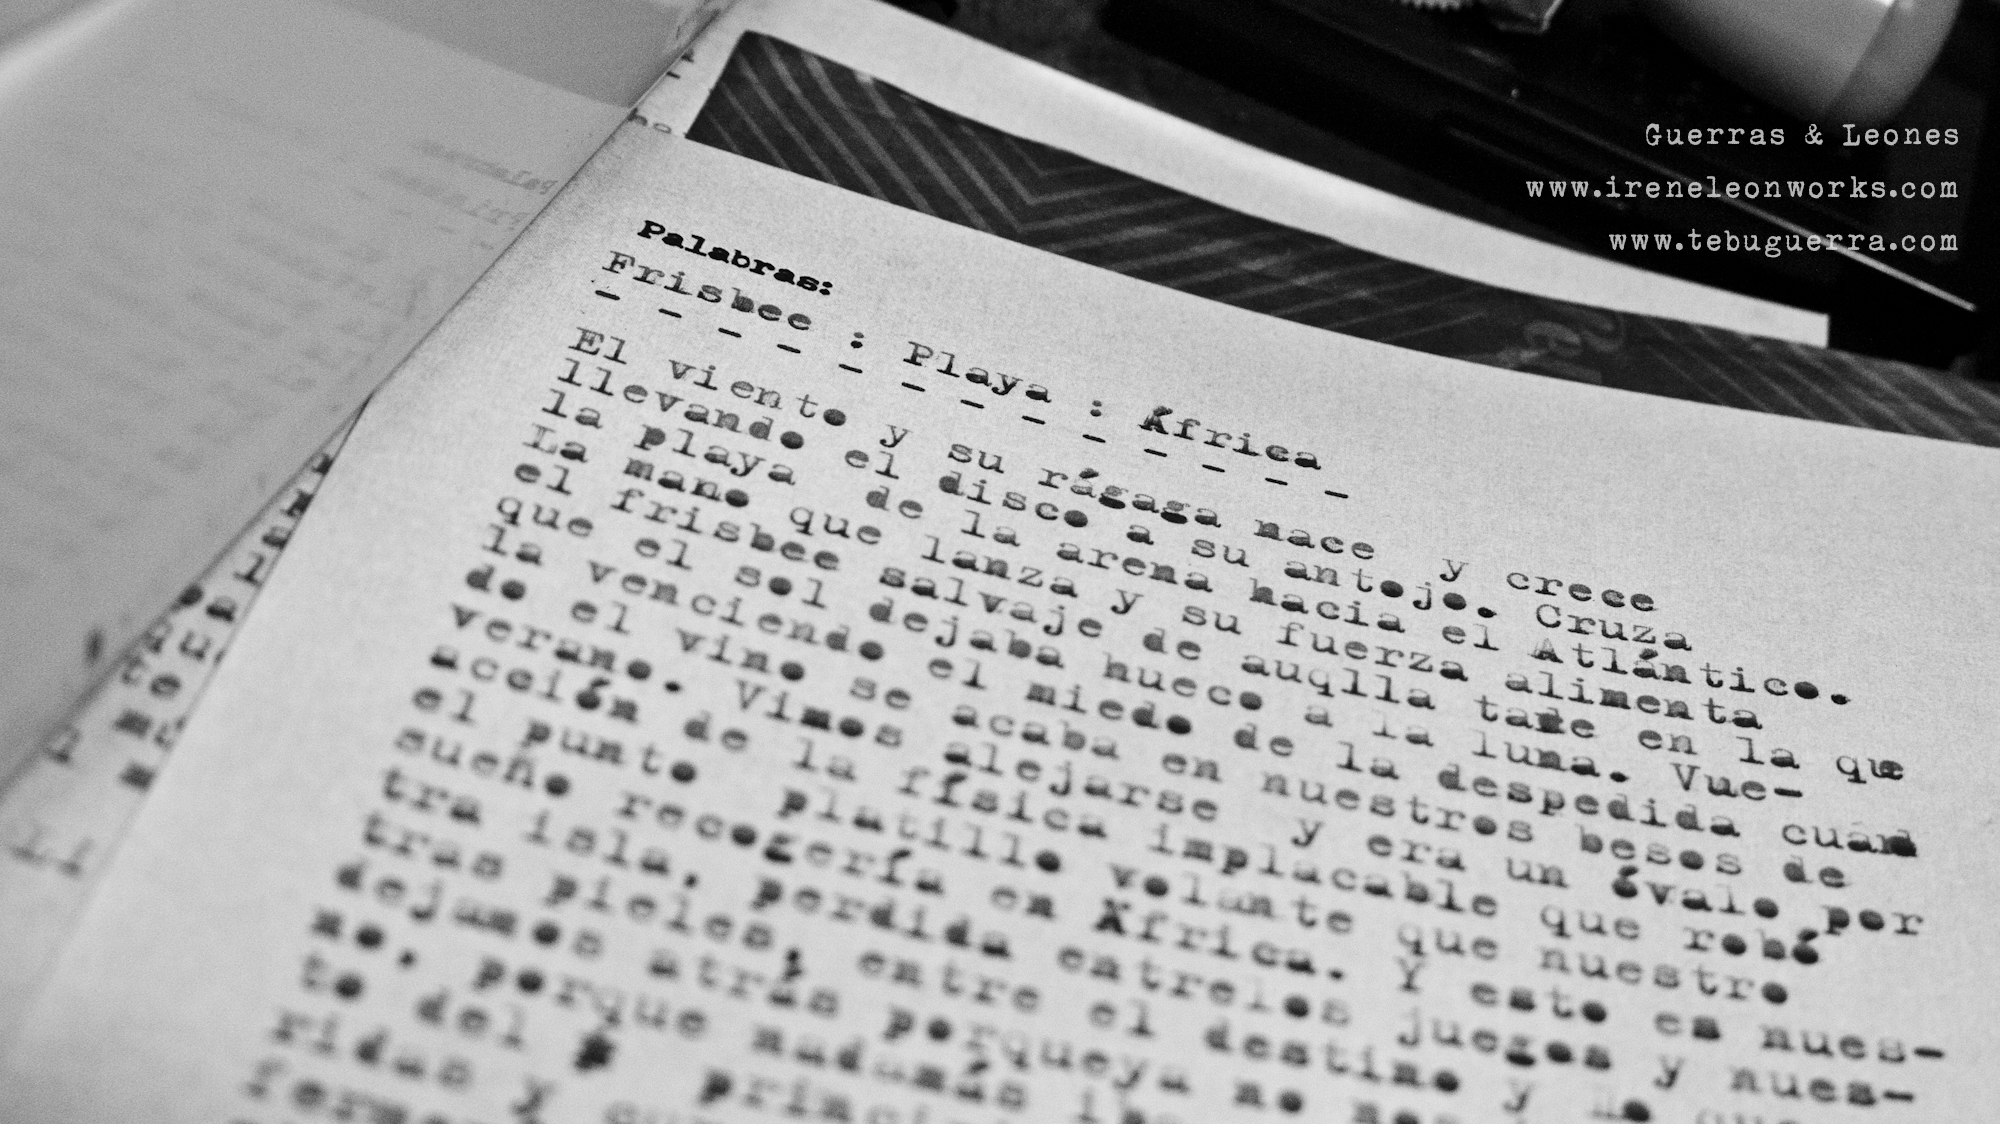 Guerras & Leones
www.ireneleonworks.com
www.tebuguerra.com
Palabras:
Frisbee : Playa : África
- - - - - - - - - - - - -
El viento y su rágaga nace y crece
llevando el disco a su antojo. Cruza
la playa de la arena hacia el Atlántico.
La mano que lanza y su fuerza alimenta
el frisbee salvaje de auqlla tade en la que
que el sol dejaba hueco a la luna. Vue-
la venciendo el miedo de la despedida cuan
do el vino se acaba en nuestros besos de
verano. Vimos alejarse y era un óvalo por
acción de la física implacable que robó
el punto platillo volante que nuestro
sueño recogería en África. Y esto es nues-
tra isla, perdida entrelos juegos y nues-
tras pieles, entre el destino y lo que
dejamos atrás porqueya no nos
no, porque nadamás
to del princi
ridas y